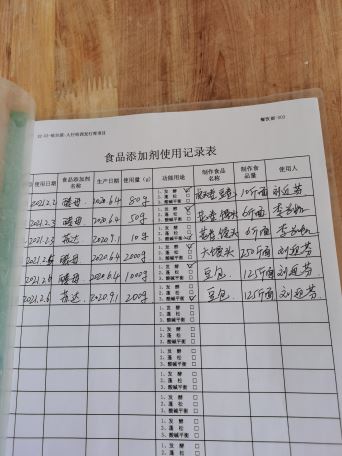 餐饮部-003
食品添加剂使用记录表
使用日期 食品添加剂名称 生产日期 使用量(g) 功能用途 制作食品名称 制作食品量 使用人
酵母 2020.6.4 80g 1、发酵 2、蓬松 3、酸碱平衡 10斤面 刘迎芬
2021.2.3 酵母 2020.6.4 50g 1、发酵 2、蓬松 3、酸碱平衡 花卷 馒头 6斤面
2021.2.3 苏达 2020.9.1 10g 1、发酵 2、蓬松 3、酸碱平衡 花卷 馒头 6斤面
2021.2.6 酵母 2020.6.4 2000g 1、发酵 2、蓬松 3、酸碱平衡 大馒头 250斤面 刘迎芬
2021.2.6 酵母 2020.6.4 1000g 1、发酵 2、蓬松 3、酸碱平衡 豆包 125斤面 刘迎芬
2021.2.6 苏达 2020.9.1 200g 1、发酵 2、蓬松 3、酸碱平衡 豆包 125斤面 刘迎芬
1、发酵
2、蓬松
3、酸碱平衡
1、发酵
2、蓬松
3、酸碱平衡
1、发酵
2、蓬松
3、酸碱平衡
1、发酵
2、蓬松
3、酸碱平衡
1、发酵
2、蓬松
3、酸碱平衡